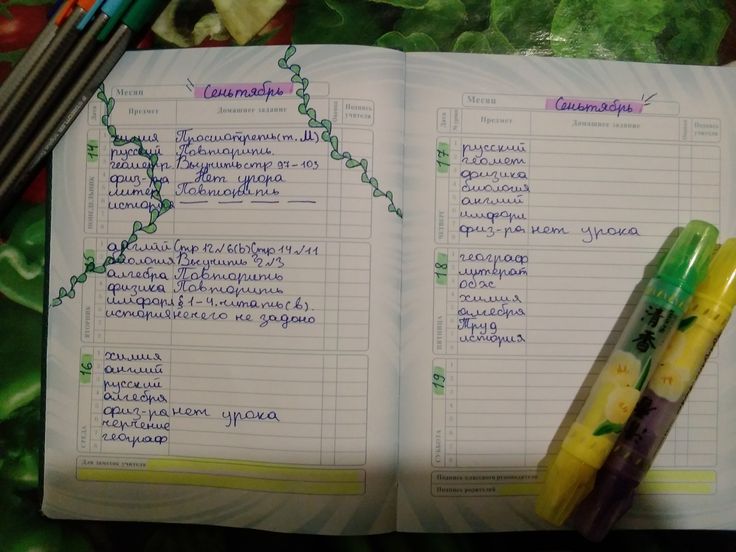 Месяц Сеньтябрь
Дата Предмет Домашнее задание Оценка Подпись учителя
ПОНЕДЕЛЬНИК 14
химия Просмотреть(т.М)
русский Повторить.
геометр Выучить стр 97-103
физ-ра Нет урока
литер Повторить
история — — — —
ВТОРНИК
англий Стр 12 №6(b) Стр 14 №11
биология Выучить §2 №3
алгебра Повторить
физика Повторить
информ § 1-4. читать(в).
история нечего не задоно
СРЕДА 16
химия
англий
русский
алгебра
физ-ра нет урока
черчение
географ
Для заметок учителя
Месяц Сеньтябрь
Дата № урока Предмет Домашнее задание Оценка Подпись учителя
ЧЕТВЕРГ 17
русский
геомет
физика
биология
англий
информ
физ-ра нет урока
ПЯТНИЦА 18
географ
литерат
обж
химия
алгебра
Труд
история
СУББОТА 19
Подпись классного руководителя
Подпись родителей
清香